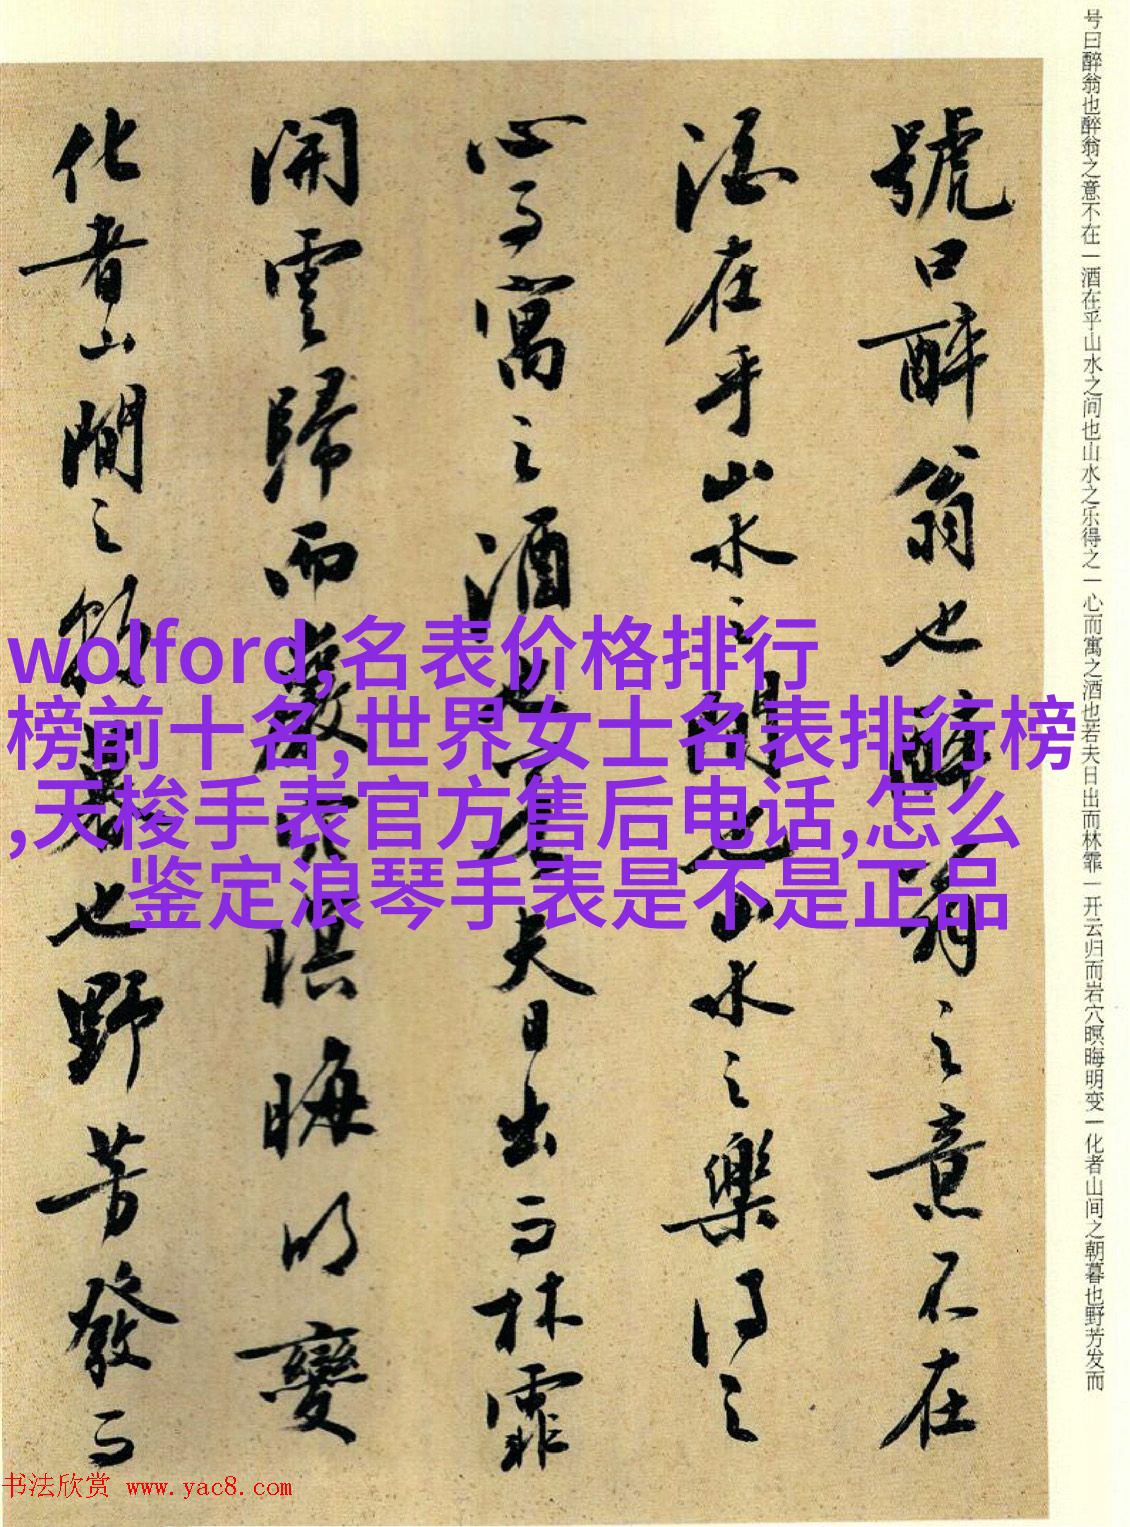 号曰醉翁也醉翁之意不在一酒在乎山水之间也山水之乐得之一心而寓之酒也若夫日出而林霏一开云归而岩穴暝晦明变一化者山间之朝暮也野芳发而
號曰醉翁也醉翁之意不在
酒在乎山水之間也山水之樂得之
心而寓之酒也若夫日出而林霏
開雲歸而巖穴暝晦明變
化者山間之朝暮也野芳發而
wolford,名表价格排行
榜前十名,世界女士名表排行榜
,天梭手表官方售后电话,怎么
鉴定浪琴手表是不是正品
书法欣赏 www.yac8.com